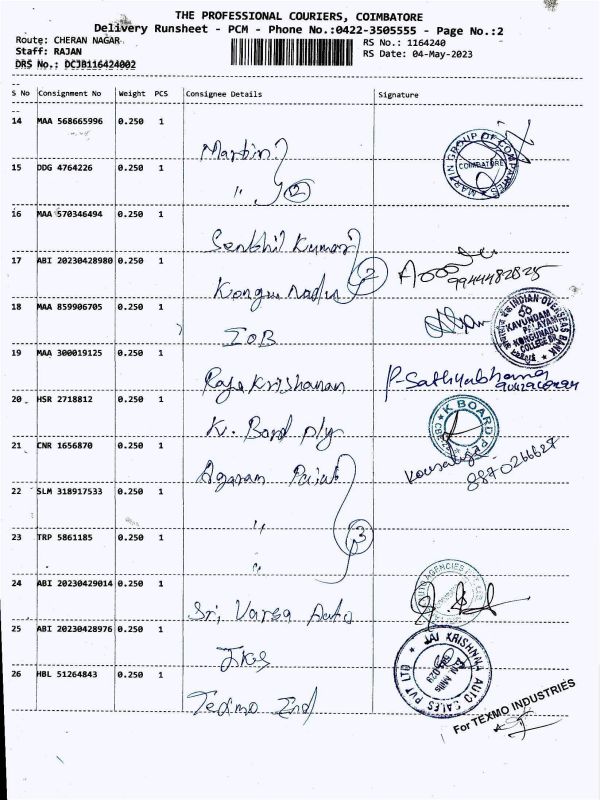 THE PROFESSIONAL COURIERS, COIMBATORE
Delivery Runsheet - PCM - Phone No.:0422-3505555 - Page No.:2
Route: CHERAN NAGAR
RS No.: 1164240
Staff: RAJAN
RS Date: 04-May-2023
DRS No.: DCJB116424002
S No Consignment No Weight PCS Consignee Details Signature
14 MAA 568665996 0.250 1
Martin
MARTIN GROUP OF COMPANIES COIMBATORE
15 DDG 4764226 0.250 1
" 2
16 MAA 570346494 0.250 1
Senthil Kumar
17 ABI 20230428980 0.250 1
Kongunadu 2
18 MAA 859906705 0.250 1
IOB
INDIAN OVERSEAS BANK KAVUNDAM PALAYAM KONGUNADU COLLEGE BR
19 MAA 300019125 0.250 1
Raja Krishanan P-Sathyabhama
20 HSR 2718812 0.250 1
K. Bord ply
K BOARD
21 CNR 1656870 0.250 1
Agaram
8870266627
22 SLM 318917533 0.250 1
"
23 TRP 5861185 0.250 1
" 3
24 ABI 20230429014 0.250 1
Sri, Varsa Auto
AUTO AGENCIES
25 ABI 20230428976 0.250 1
JKS
JAI KRISHNA AUTO SALES PVT LTD
26 HBL 51264843 0.250 1
Texmo Ind
For TEXMO INDUSTRIES